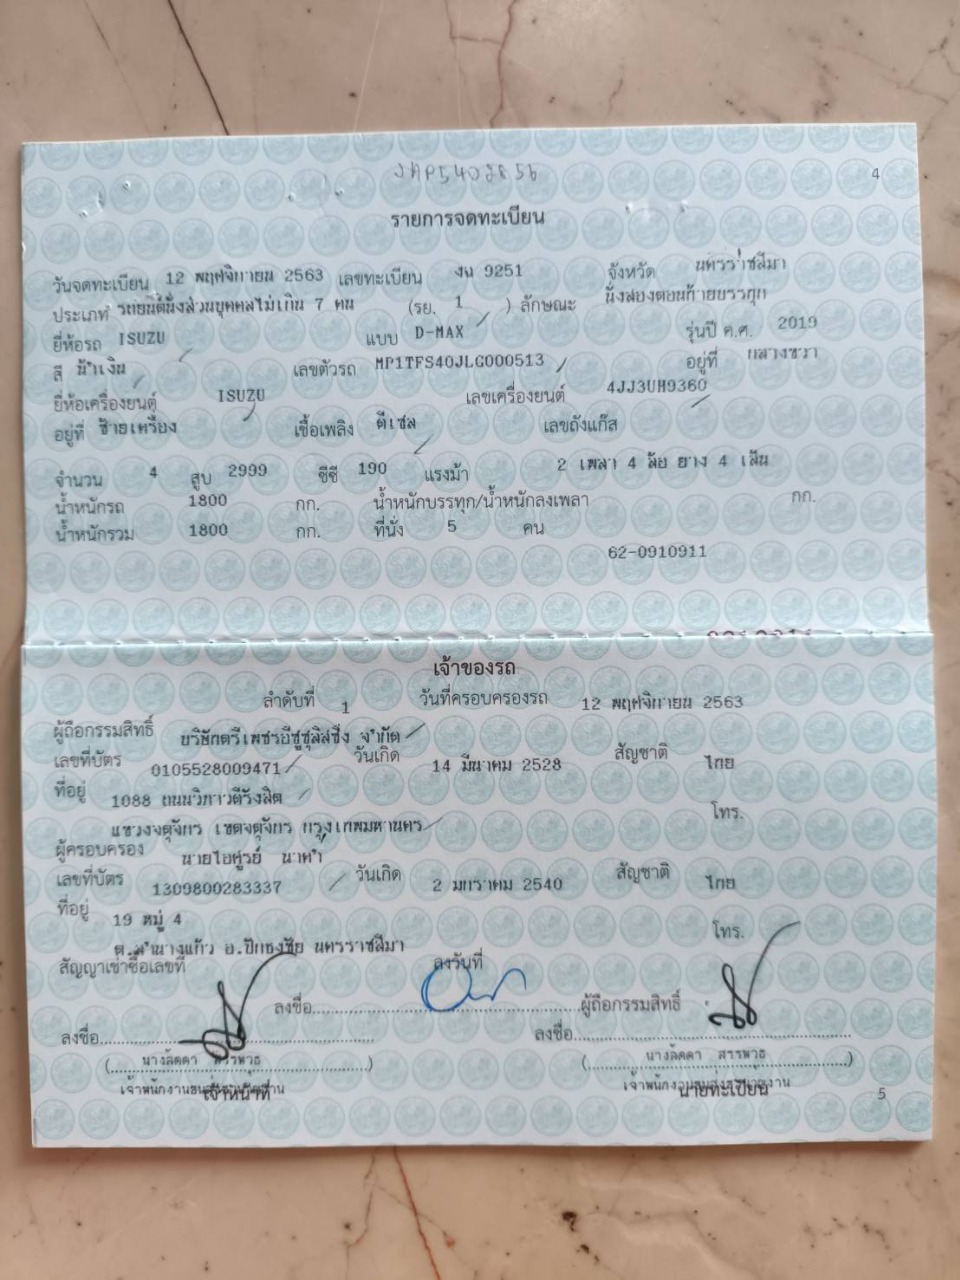 4
รายการจดทะเบียน
วันจดทะเบียน 12 พฤศจิกายน 2563 เลขทะเบียน งน 9251 จังหวัด นครราชสีมา
ประเภท รถยนต์นั่งส่วนบุคคลไม่เกิน 7 คน (รย. 1 ) ลักษณะ นั่งสองตอนท้ายบรรทุก
ยี่ห้อรถ ISUZU แบบ D-MAX รุ่นปี ค.ศ. 2019
สี น้ำเงิน เลขตัวรถ MP1TFS40JLG000513 อยู่ที่ กลางขวา
ยี่ห้อเครื่องยนต์ ISUZU เลขเครื่องยนต์ 4JJ3UH9360
อยู่ที่ ซ้ายเครื่อง เชื้อเพลิง ดีเซล เลขถังแก๊ส
จำนวน 4 สูบ 2999 ซีซี 190 แรงม้า 2 เพลา 4 ล้อ ยาง 4 เส้น
น้ำหนักรถ 1800 กก. น้ำหนักบรรทุก/น้ำหนักลงเพลา กก.
น้ำหนักรวม 1800 กก. ที่นั่ง 5 คน
62-0910911
เจ้าของรถ
ลำดับที่ 1 วันที่ครอบครองรถ 12 พฤศจิกายน 2563
ผู้ถือกรรมสิทธิ์ บริษัทตรีเพชรอีซูซุลิสซิ่ง จำกัด
เลขที่บัตร 0105528009471 วันเกิด 14 มีนาคม 2528 สัญชาติ ไทย
ที่อยู่ 1088 ถนนวิภาวดีรังสิต
แขวงจตุจักร เขตจตุจักร กรุงเทพมหานคร โทร.
ผู้ครอบครอง นายไอศูรย์ นาคำ
เลขที่บัตร 1309800283337 วันเกิด 2 มกราคม 2540 สัญชาติ ไทย
ที่อยู่ 19 หมู่ 4
ต.สำนางแก้ว อ.ปักธงชัย นครราชสีมา โทร.
สัญญาเช่าซื้อเลขที่ ลงวันที่
ลงชื่อ ผู้ถือกรรมสิทธิ์
ลงชื่อ ลงชื่อ
(นางลัดดา สรรพวุธ) (นางลัดดา สรรพวุธ)
เจ้าพนักงานขนส่งชำนาญงาน เจ้าพนักงานขนส่งชำนาญงาน
เจ้าหน้าที่ นายทะเบียน
5